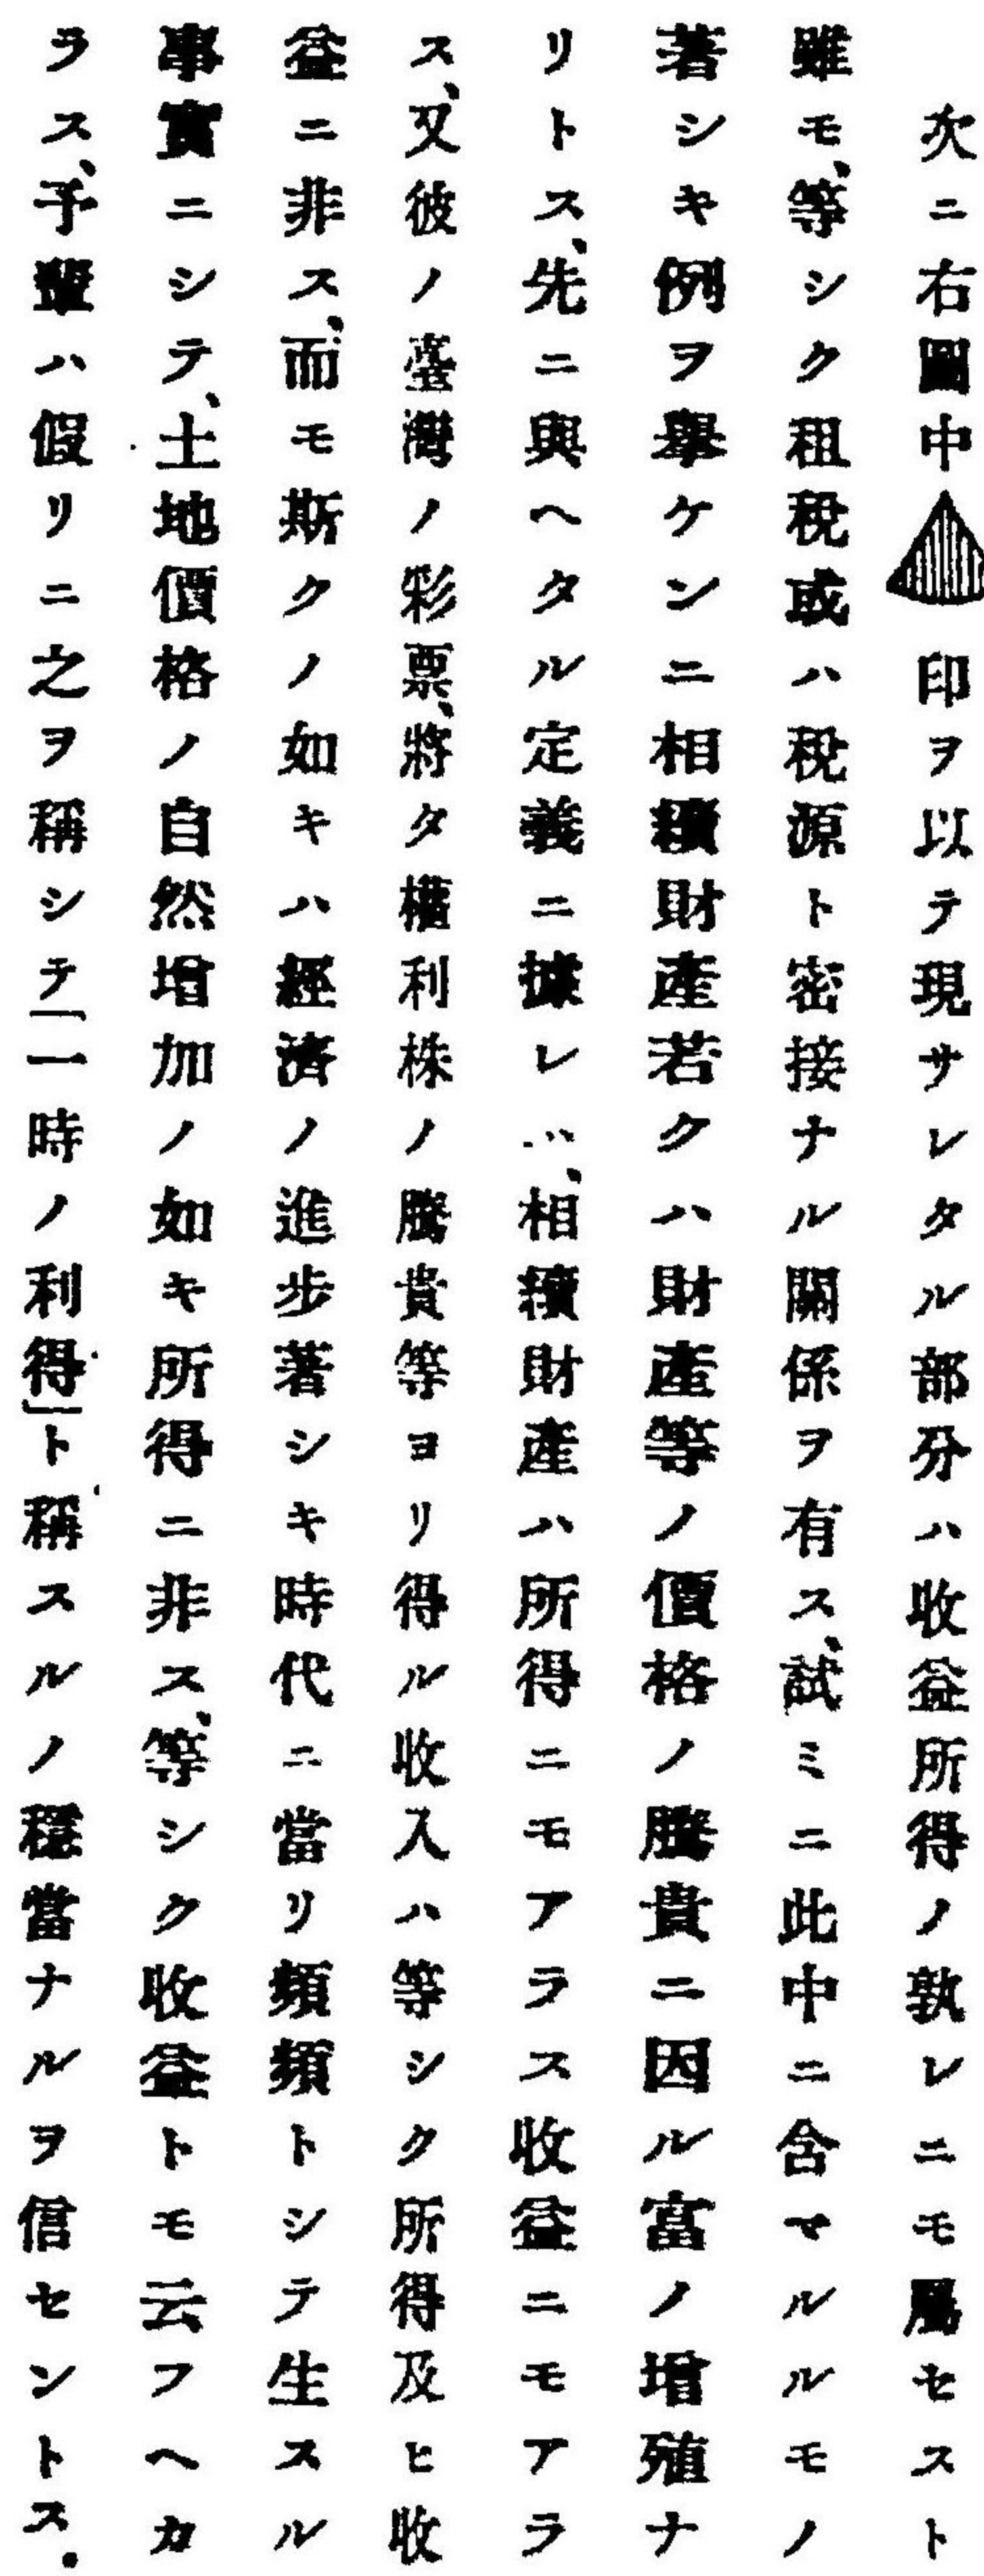 次ニ右圖中印ヲ以テ現サレタル部分ハ收益所得ノ孰レニモ屬セスト
雖モ、等シク租稅或ハ稅源ト密接ナル關係ヲ有ス、試ミニ此中ニ含マルルモノ
著シキ例ヲ擧ケンニ相續財產若クハ財產等ノ價格ノ騰貴ニ因ル富ノ增殖ナ
リトス、先ニ與ヘタル定義ニ據レバ、相續財產ハ所得ニモアラス收益ニモアラ
ス、又彼ノ臺灣ノ彩票、將タ權利株ノ騰貴等ヨリ得ル收入ハ等シク所得及ヒ收
益ニ非ス、而モ斯クノ如キハ經濟ノ進步著シキ時代ニ當リ頻頻トシテ生スル
事實ニシテ、土地價格ノ自然增加ノ如キ所得ニ非ス、等シク收益トモ云フヘカ
ラス、予輩ハ假リニ之ヲ稱シテ「一時ノ利得」ト稱スルノ穩當ナルヲ信セントス.